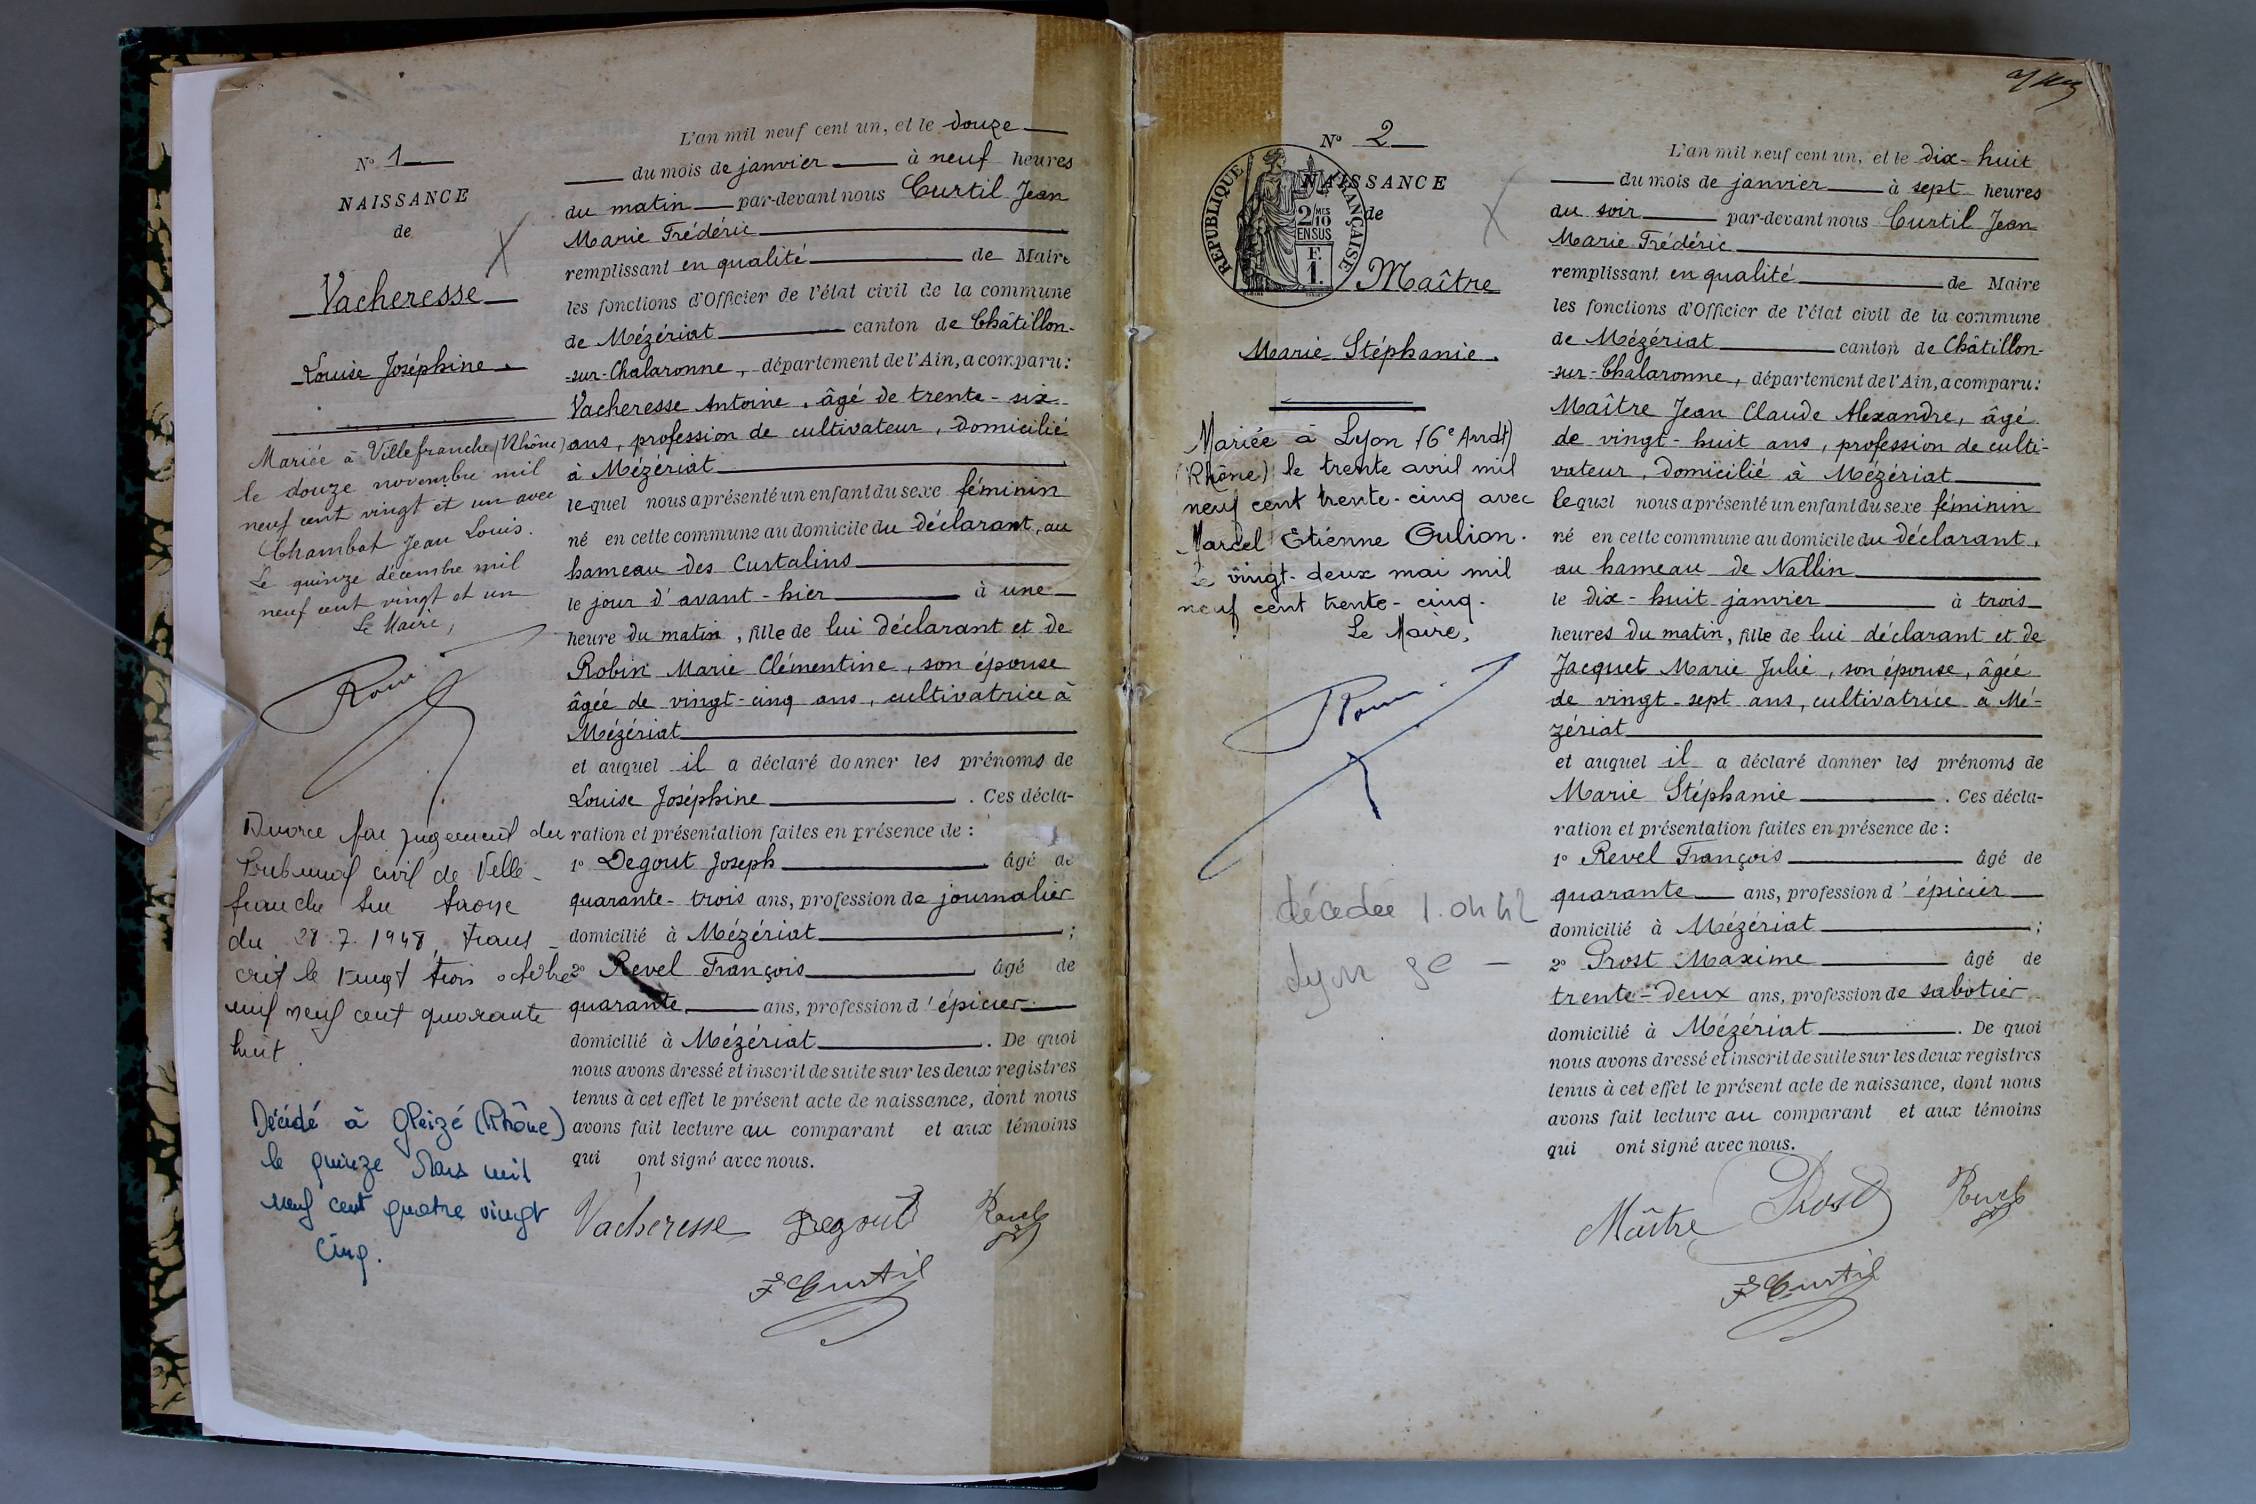 N° 1
NAISSANCE
de
Vacheresse
Louise Joséphine.
Mariée à Villefranche (Rhône)
le douze novembre mil
neuf cent vingt et un avec
Chambat Jean Louis.
Le quinze décembre mil
neuf cent vingt et un
Le Maire,
Divorce par jugement du
Tribunal civil de Ville-
franche sur Saone
du 28.7.1948, trans-
crit le vingt trois octobre
mil neuf cent quarante
huit.
Décédé à Gleizé (Rhône)
le quinze Mars mil
neuf cent quatre vingt
cinq.
L'an mil neuf cent un, et le douze
du mois de janvier à neuf heures
du matin par-devant nous Curtil Jean
Marie Frédéric
remplissant en qualité de Maire
les fonctions d'Officier de l'état civil de la commune
de Mézériat canton de Châtillon-
-sur-Chalaronne, département de l'Ain, a comparu:
Vacheresse Antoine, âgé de trente-six
ans, profession de cultivateur, domicilié
à Mézériat
lequel nous a présenté un enfant du sexe féminin
né en cette commune au domicile du déclarant, au
hameau des Curtalins
le jour d'avant-hier à une
heure du matin, fille de lui déclarant et de
Robin Marie Clémentine, son épouse
âgée de vingt-cinq ans, cultivatrice à
Mézériat
et auquel il a déclaré donner les prénoms de
Louise Joséphine. Ces décla-
ration et présentation faites en présence de:
1° Degout Joseph âgé de
quarante-trois ans, profession de journalier
domicilié à Mézériat;
2° Revel François âgé de
quarante ans, profession d'épicier
domicilié à Mézériat. De quoi
nous avons dressé et inscrit de suite sur les deux registres
tenus à cet effet le présent acte de naissance, dont nous
avons fait lecture au comparant et aux témoins
qui ont signé avec nous.
Vacheresse Degout Revel
F Curtil
N° 2
RÉPUBLIQUE FRANÇAISE
2/10 MES
EN SUS
F.
1.
NAISSANCE
de
Maître
Marie Stéphanie.
Mariée à Lyon (6e Arrdt)
(Rhône) le trente avril mil
neuf cent trente-cinq avec
Marcel Etienne Oulion.
Le vingt-deux mai mil
neuf cent trente-cinq.
Le Maire,
décédée 1.04.42
Lyon 3e -
L'an mil neuf cent un, et le dix-huit
du mois de janvier à sept heures
du soir par-devant nous Curtil Jean
Marie Frédéric
remplissant en qualité de Maire
les fonctions d'Officier de l'état civil de la commune
de Mézériat canton de Châtillon-
-sur-Chalaronne, département de l'Ain, a comparu:
Maître Jean Claude Alexandre, âgé
de vingt-huit ans, profession de culti-
vateur, domicilié à Mézériat
lequel nous a présenté un enfant du sexe féminin
né en cette commune au domicile du déclarant,
au hameau de Nallin
le dix-huit janvier à trois
heures du matin, fille de lui déclarant et de
Jacquet Marie Julie, son épouse, âgée
de vingt-sept ans, cultivatrice à Mé-
zériat
et auquel il a déclaré donner les prénoms de
Marie Stéphanie. Ces décla-
ration et présentation faites en présence de:
1° Revel François âgé de
quarante ans, profession d'épicier
domicilié à Mézériat;
2° Prost Maxime âgé de
trente-deux ans, profession de sabotier
domicilié à Mézériat. De quoi
nous avons dressé et inscrit de suite sur les deux registres
tenus à cet effet le présent acte de naissance, dont nous
avons fait lecture au comparant et aux témoins
qui ont signé avec nous.
Maître Prost Revel
F Curtil